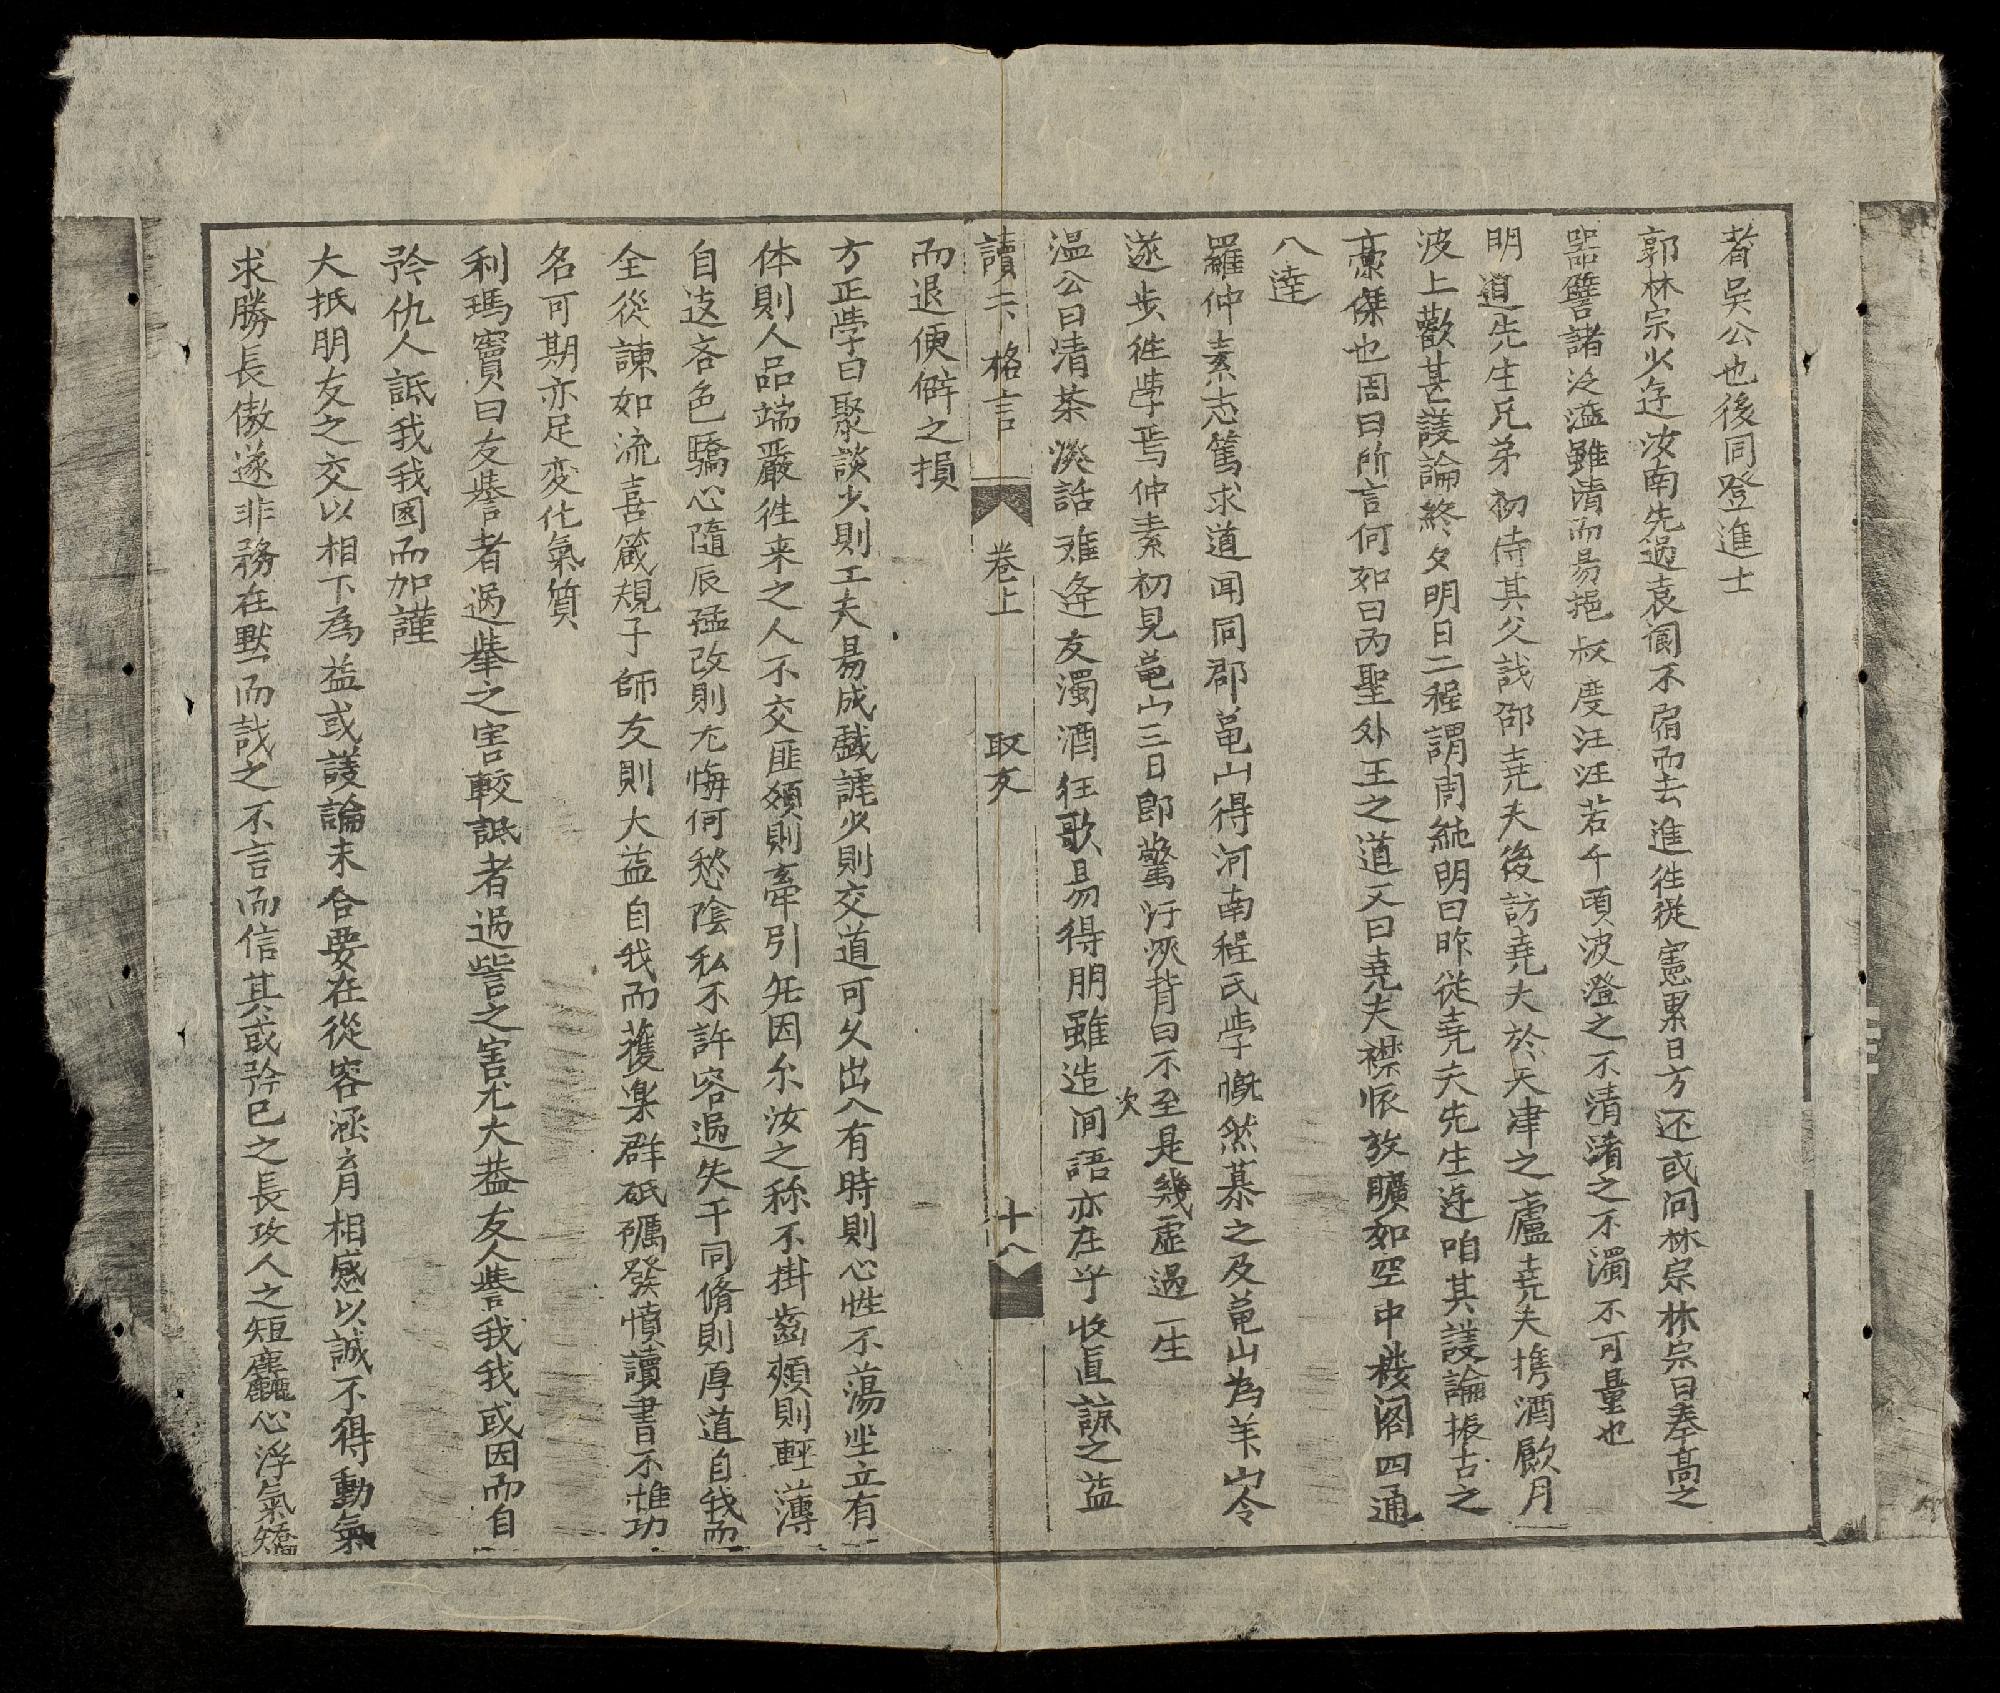 者吴公也後同登進士
郭林宗少逰汝南先過袁閬不宿而去進徃從憲累日方还或问林宗林宗曰奉高之
器譬諸泛濫雖清而易挹叔度汪汪若千頃波澄之不清淆之不濁不可量也
明道先生兄弟初侍其父訪邵尭夫後訪尭夫於天津之廬尭夫携酒飮月
波上歡甚議論終夕明日二程謂周純明曰昨從尭夫先生逰咱其議論振古之
豪傑也周曰所言何如曰内聖外王之道又曰尭夫襟懐放曠如空中楼阁四通
八達
羅仲素志篤求道闻同郡龜山得河南程氏斈慨然慕之及龜山為羊山令
遂步徃斈焉仲素初見龜山三日即驚汗浹背曰不至是幾虚過一生
次
温公曰清茶淡話难逢友濁酒狂歌易得朋雖造间語亦在乎收直諒之益
讀二格言 卷上 取友 十八
而退便僻之損
方正斈曰聚談少則工夫易成戱謔少則交道可久出入有時則心性不蕩坐立有
体則人品端嚴徃来之人不交匪類則牽引旡因尔汝之称不掛齒頰則輕薄
自这吝色驕心隨辰猛改則尤悔何愁陰私不許容過失于同脩則厚道自我而
全從諫如流喜箴規子師友則大益自我而獲楽群砥礪發憤讀書不惟功
名可期亦足变化氣質
利瑪竇曰友誉者過挙之害較詆者過訾之害尤大葢友人誉我我或因而自
矜仇人詆我我國而加謹
大抵朋友之交以相下為益或議論未合要在從容涵育相感以誠不得動氣
求勝長傲遂非務在黙而哉之不言而信其或矜已之長攻人之短麤心浮氣矯